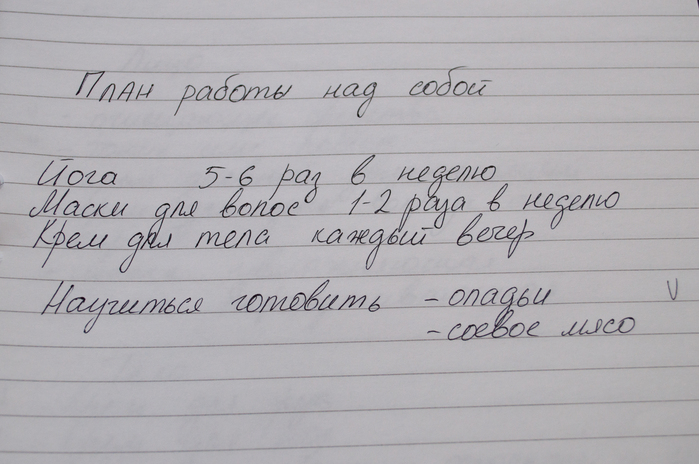 План работы над собой
Йога 5-6 раз в неделю
Маски для волос 1-2 раза в неделю
Крем для тела каждый вечер
Научиться готовить - оладьи V
- соевое мясо